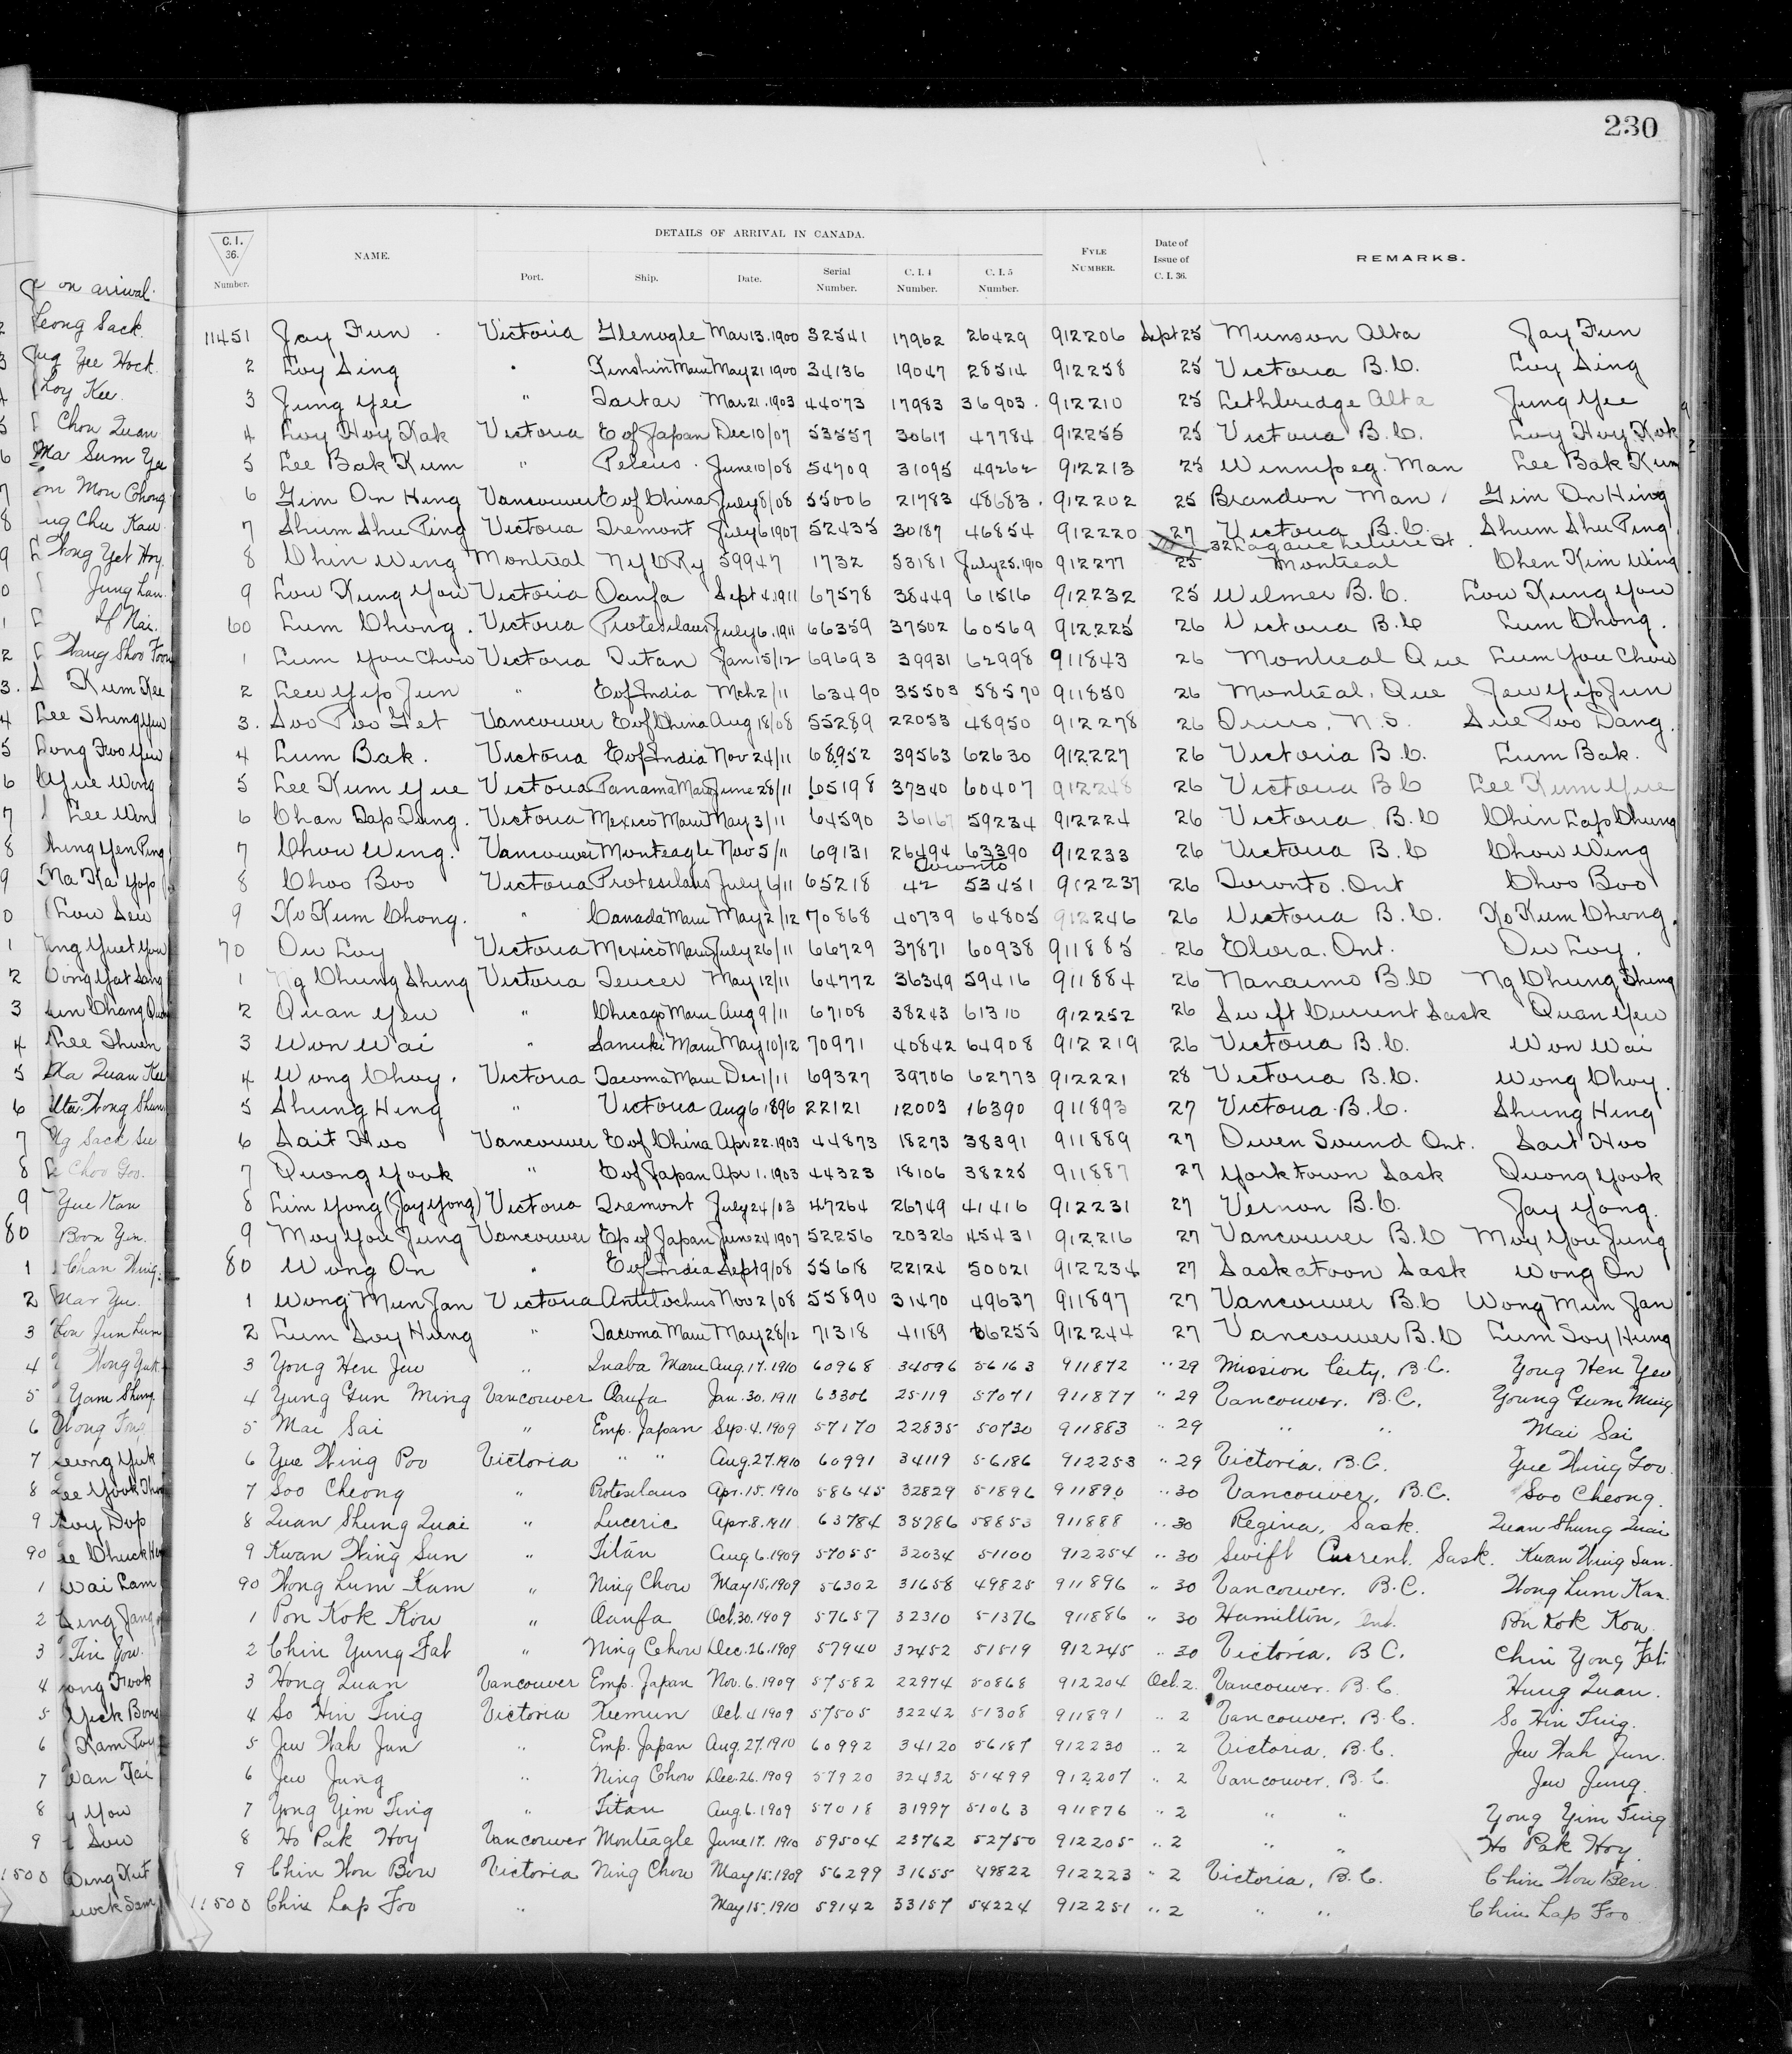 230
DETAILS OF ARRIVAL IN CANADA.
C. I. 36. Number. NAME. Port. Ship. Date. Serial Number. C. I. 4 Number. C. I. 5 Number. FYLE NUMBER. Date of Issue of C. I. 36. REMARKS.
11451 Jay Fun Victoria Glenogle Mar 13. 1900 32541 17962 26429 912206 Sept 25 Munson Alta Jay Fun
2 Loy Sing " Kinshin Maru May 21 1900 34136 19047 28514 912258 25 Victoria B.C. Loy Sing
3 Jung Yee " Tartar Mar 21. 1903 44073 17983 36903 912210 25 Lethbridge Alta Jung Yee
4 Loy Hoy Kak Victoria E of Japan Dec 10/07 53557 30617 47784 912255 25 Victoria B.C. Loy Hoy Kok
5 Lee Bak Kum " Peleus June 10/08 54709 31095 49262 912213 25 Winnipeg. Man Lee Bak Kum
6 Gim On Hing Vancouver E of China July 8/08 55006 21783 48683 912202 25 Brandon Man Gim On Hing
7 Shum Shu Ping Victoria Tremont July 6 1907 52435 30187 46854 912220 27 Victoria B.C. Shum Shu Ping
8 Chin Wing Montreal NYCRy 59947 1732 53181 July 25. 1910 912277 25 32 Lagauchetiere St Montreal Chen Kim Wing
9 Low Kung You Victoria Oanfa Sept 4. 1911 67578 38449 61516 912232 25 Wilmer B.C. Low Kung You
60 Lum Chong. Victoria Protesilaus July 6. 1911 66359 37502 60569 912225 26 Victoria B.C Lum Chong.
1 Lum You Chow Victoria Titan Jan 15/12 69693 39931 62998 911843 26 Montreal Que Lum You Chow
2 Lew Yip Jun " E of India Mch 2/11 63490 35503 58570 911850 26 Montreal, Que Jew Yip Jun
3. Soo Poo Get Vancouver E of China Aug 18/08 55289 22053 48950 912278 26 N.S. Sue Poo Dang.
4 Lum Bak. Victoria E of India Nov 24/11 68952 39563 62630 912227 26 Victoria B.C. Lum Bak.
5 Lee Kum Yue Victoria Panama Maru June 28/11 65198 37340 60407 912248 26 Victoria BC Lee Kum Yue
6 Chan Dap Dung. Victoria Mexico Maru May 3/11 64590 36167 59234 912224 26 Victoria B.C Chin Lap Chung
7 Chow Wing. Vancouver Monteagle Nov 5/11 69131 26494 63390 912233 26 Victoria B.C Chow Wing
8 Choo Boo Victoria Protesilaus July 6/11 65218 Toronto 42 53451 912237 26 Toronto. Ont Choo Boo
9 Ko Kum Chong. " Canada Maru May 2/12 70868 40739 64805 912246 26 Victoria B.C. Ko Kum Chong.
70 Ow Loy Victoria Mexico Maru July 26/11 66729 37871 60938 911885 26 Elora. Ont. Ow Loy.
1 Ng Chung Shing Victoria Teucer May 12/11 64772 36349 59416 911884 26 Nanaimo B.C Ng Chung Shing
2 Quan Yew " Chicago Maru Aug 9/11 67108 38243 61310 912252 26 Swift Current Sask Quan Yew
3 Won Wai " Sanuki Maru May 10/12 70971 40842 64908 912219 26 Victoria B.C. Won Wai
4 Wong Choy. Victoria Tacoma Maru Dec 1/11 69327 39706 62773 912221 28 Victoria B.C. Wong Choy.
5 Shung Hing " Victoria Aug 6. 1896 22121 12003 16390 911893 27 Victoria B.C. Shung Hing
6 Sait Hoo Vancouver E of China Apr 22. 1903 44873 18273 38391 911889 27 Owen Sound Ont. Sait Hoo
7 Quong Yook " E of Japan Apr 1. 1903 44323 18106 38225 911887 27 Yorktown Sask Quong Yook
8 Lim Yong (Jay Yong) Victoria Tremont July 24/03 47264 26749 41416 912231 27 Vernon B.C. Jay Yong.
9 Moy You Jung Vancouver Ep of Japan June 24 1907 52256 20326 45431 912216 27 Vancouver B.C Moy You Jung
80 Wong On " E of India Sept 9/08 55618 22124 50021 912234 27 Saskatoon Sask Wong On
1 Wong Mun Jan Victoria Antilochus Nov 2/08 55890 31470 49637 911897 27 Vancouver B.C Wong Mun Jan
2 Lum Soy Hung " Tacoma Maru May 28/12 71318 41189 66255 912244 27 Vancouver B.C Lum Soy Hung
3 Yong Hen Jew " Inaba Maru Aug. 17. 1910 60968 34096 56163 911872 " 29 Mission City, B.C. Yong Hen Yeo
4 Yung Gun Ming Vancouver Oanfa Jan. 30. 1911 63306 25119 57071 911877 " 29 Vancouver. B.C. Young Gum Ming
5 Mai Sai " Emp. Japan Sep. 4. 1909 57170 22835 50730 911883 " 29 " " Mai Sai
6 Yue Wing Poo Victoria " " Aug. 27. 1910 60991 34119 56186 912253 " 29 Victoria. B.C. Yue Wing Foo
7 Soo Cheong " Protesilaus Apr. 15. 1910 58645 32829 51896 911890 " 30 Vancouver, B.C. Soo Cheong.
8 Quan Shung Quai " Luceric Apr. 8. 1911 63784 35786 58853 911888 " 30 Regina, Sask. Quan Shung Quai
9 Kwan Wing Sun " Titan Aug 6. 1909 57055 32034 51100 912254 " 30 Swift Current. Sask. Kwan Wing Sun.
90 Wong Lum Kam " Ning Chow May 15. 1909 56302 31658 49825 911896 " 30 Vancouver. B.C. Wong Lum Kan.
1 Pon Kok Kow " Oanfa Oct. 30. 1909 57657 32310 51376 911886 " 30 Hamilton, Ont. Pon Kok Kow.
2 Chin Yung Fat " Ning Cchow Dec. 26. 1909 57940 32452 51519 912245 " 30 Victoria. B.C. Chin Yong Fat.
3 Hong Quan Vancouver Emp. Japan Nov. 6. 1909 57582 22974 50868 912204 Oct. 2. Vancouver. B.C. Hung Quan.
4 So Hin Ting Victoria Keemun Oct. 4 1909 57505 32242 51308 911891 " 2 Vancouver. B.C. So Hin Ting.
5 Jew Wah Jun " Emp. Japan Aug. 27. 1910 60992 34120 56187 912230 " 2 Victoria. B.C. Jew Wah Jun.
6 Jew Jung " Ning Chow Dec. 26. 1909 57920 32432 51499 912207 " 2 Vancouver. B.C. Jew Jung.
7 Yong Yim Ting " Titan Aug. 6. 1909 57018 31997 51063 911876 " 2 " " Yong Yim Ting
8 Ho Pak Hoy Vancouver Monteagle June 17. 1910 59504 23762 52750 912205 " 2 " " Ho Pak Hoy.
9 Chin Wou Bow Victoria Ning Chow May 15. 1909 56299 31655 49822 912223 " 2 Victoria, B.C. Chin Wou Ben.
11500 Chin Lap Foo " May 15. 1910 59142 33157 54224 912251 " 2 " " Chin Lap Foo
on arrival.
Leong Sack.
Yee Hock.
Loy Kee.
Chon Quan
Ma Sum
Mou Chong
Chu Kau
Wong Yet Hoy
Jung Lan
Wang Shoo Foon
Kum Kee
Lee Shing Yew
Yue Wong
Lee Won
Yen Ping
Ma Ka Yop
Low Sew
Yuet You
Chang Quan
Lee Shuen
Quan Kee
Wong Shun
Ng Sack Sue
Choo Goo.
Yue Kan
80 Boon Yin.
Chan Wing.
Mar Yu.
Jun Lum
Wong Yuk
Yam Shing
Wong Fong
Leong Yuk
Lee Yook
Loy Dop
90 Chuck
1 Wai Lam
3 Tin Gow.
Kwok
Yick Bong
Kam Poy
Wan Kai
You
Sow
1500 Wing Kut